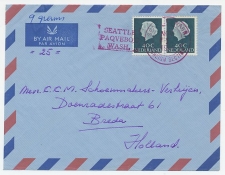 9 grams
BY AIR MAIL
PAR AVION
"25"
SEATTLE
PAQUEBOT
WASH.
40c
NEDERLAND
40c
NEDERLAND
Mevr. C.C.M. Schoenmakers-Verheyen,
Doenradestraat 61
Breda
Holland